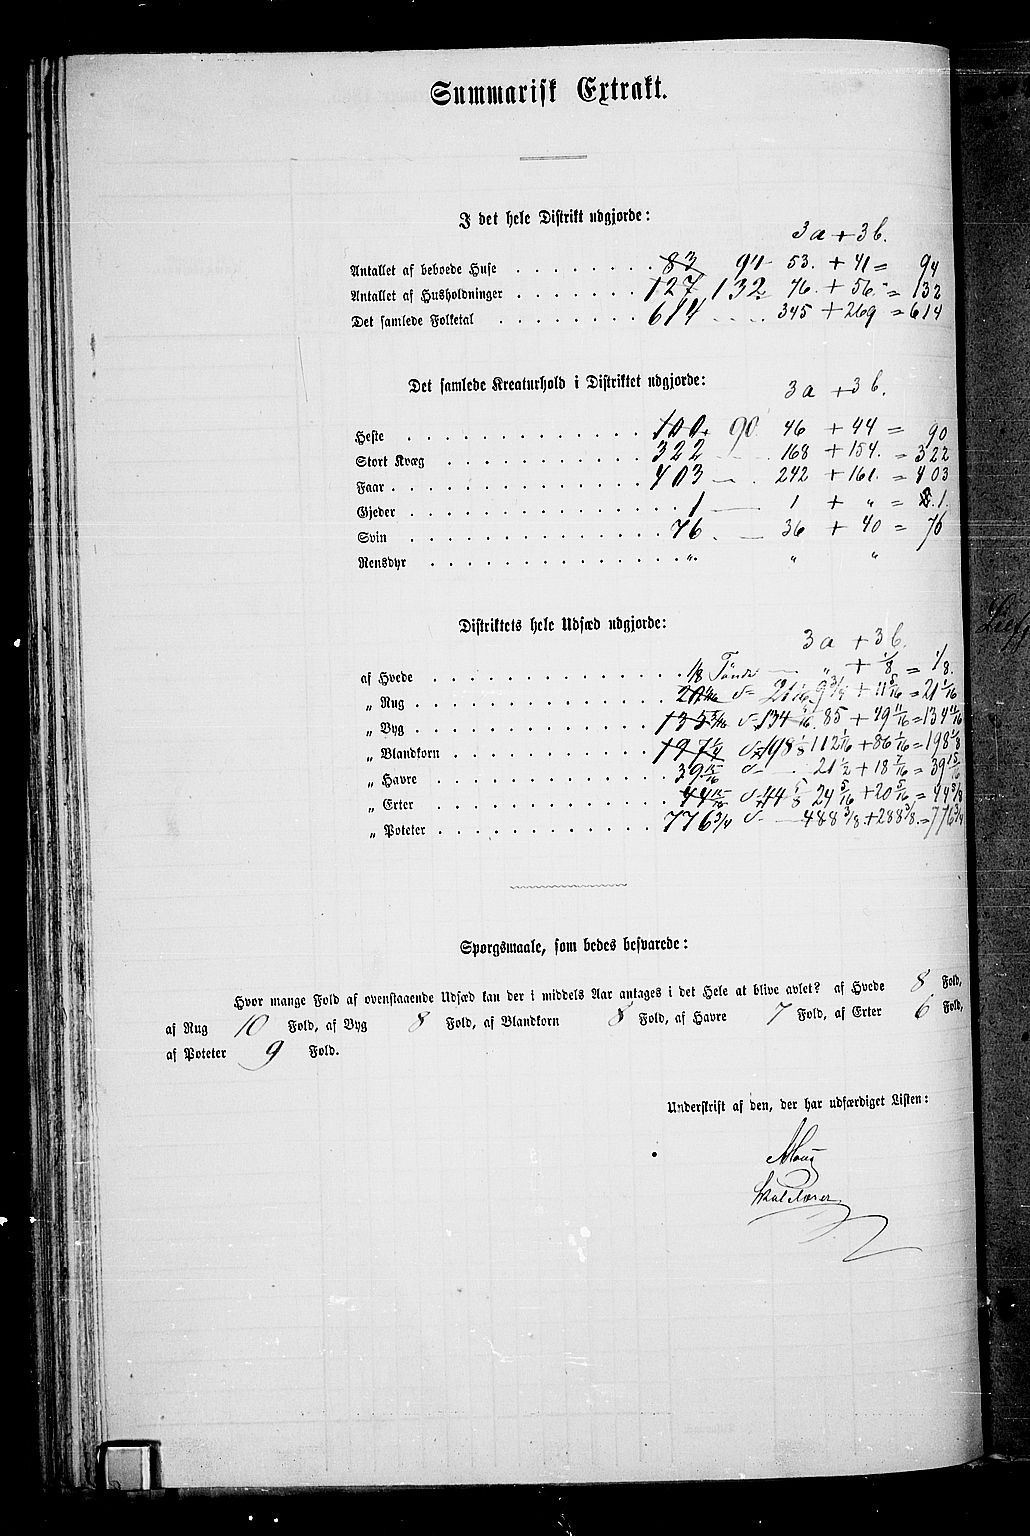 Summarisk Extrakt.
I det hele Distrikt udgjorde:
3a + 3b.
Antallet af beboede Huse 83 94 53. + 41 = 94
Antallet af Husholdninger 127 132 76. + 56. = 132
Det samlede Folketal 614 345 + 269 = 614
Det samlede Kreaturhold i Distriktet udgjorde:
3a + 3b.
Heste 100. 90. 46 + 44 = 90
Stort Kvæg 322 168 + 154. = 322
Faar 403 242 + 161. = 403
Gjeder 1 1 + " = 1.
Svin 76 36 + 40 = 76
Rensdyr " " "
Distriktets hele Udsæd udgjorde:
3a + 3b.
af Hvede 1/8 Tønde " + 1/8 = 1/8.
" Rug 21 1/16 9 3/4 + 11 5/16 = 21 1/16
" Byg 135 3/16 134 11/16 85 + 49 11/16 = 134 11/16
" Blandkorn 197 1/4 198 1/8 112 1/16 + 86 1/16 = 198 1/8
" Havre 39 15/16 21 1/2 + 18 7/16 = 39 15/16
" Erter 44 15/16 44 5/8 24 5/16 + 20 5/16 = 44 5/8
" Poteter 776 3/4 488 3/8. + 288 3/8. = 776 3/4
Spørgsmaale, som bedes besvarede:
Hvor mange Fold af ovenstaaende Udsæd kan der i middels Aar antages i det Hele at blive avlet? af Hvede 8 Fold,
af Rug 10 Fold, af Byg 8 Fold, af Blandkorn 8 Fold, af Havre 7 Fold, af Erter 6 Fold,
af Poteter 9 Fold.
Underskrift af den, der har udfærdiget Listen:
Skolelærer